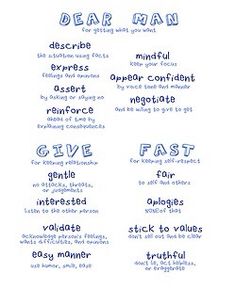 DEAR MAN
for getting what you want
describe
the situation using facts
express
feelings and opinions
assert
by asking or saying no
reinforce
ahead of time by
explaining consequences
mindful
keep your focus
appear confident
by voice tone and manner
negotiate
and be willing to give to get
GIVE
for keeping relationship
gentle
no attacks, threats,
or judgements
interested
listen to the other person
validate
acknowledge person's feelings,
wants difficulties, and opinions
easy manner
use humor, smile, ease
FAST
for keeping self-respect
fair
to self and others
aplogies
stick to values
don't sell out and be clear
truthful
don't lie, act helpless,
or exaggerate